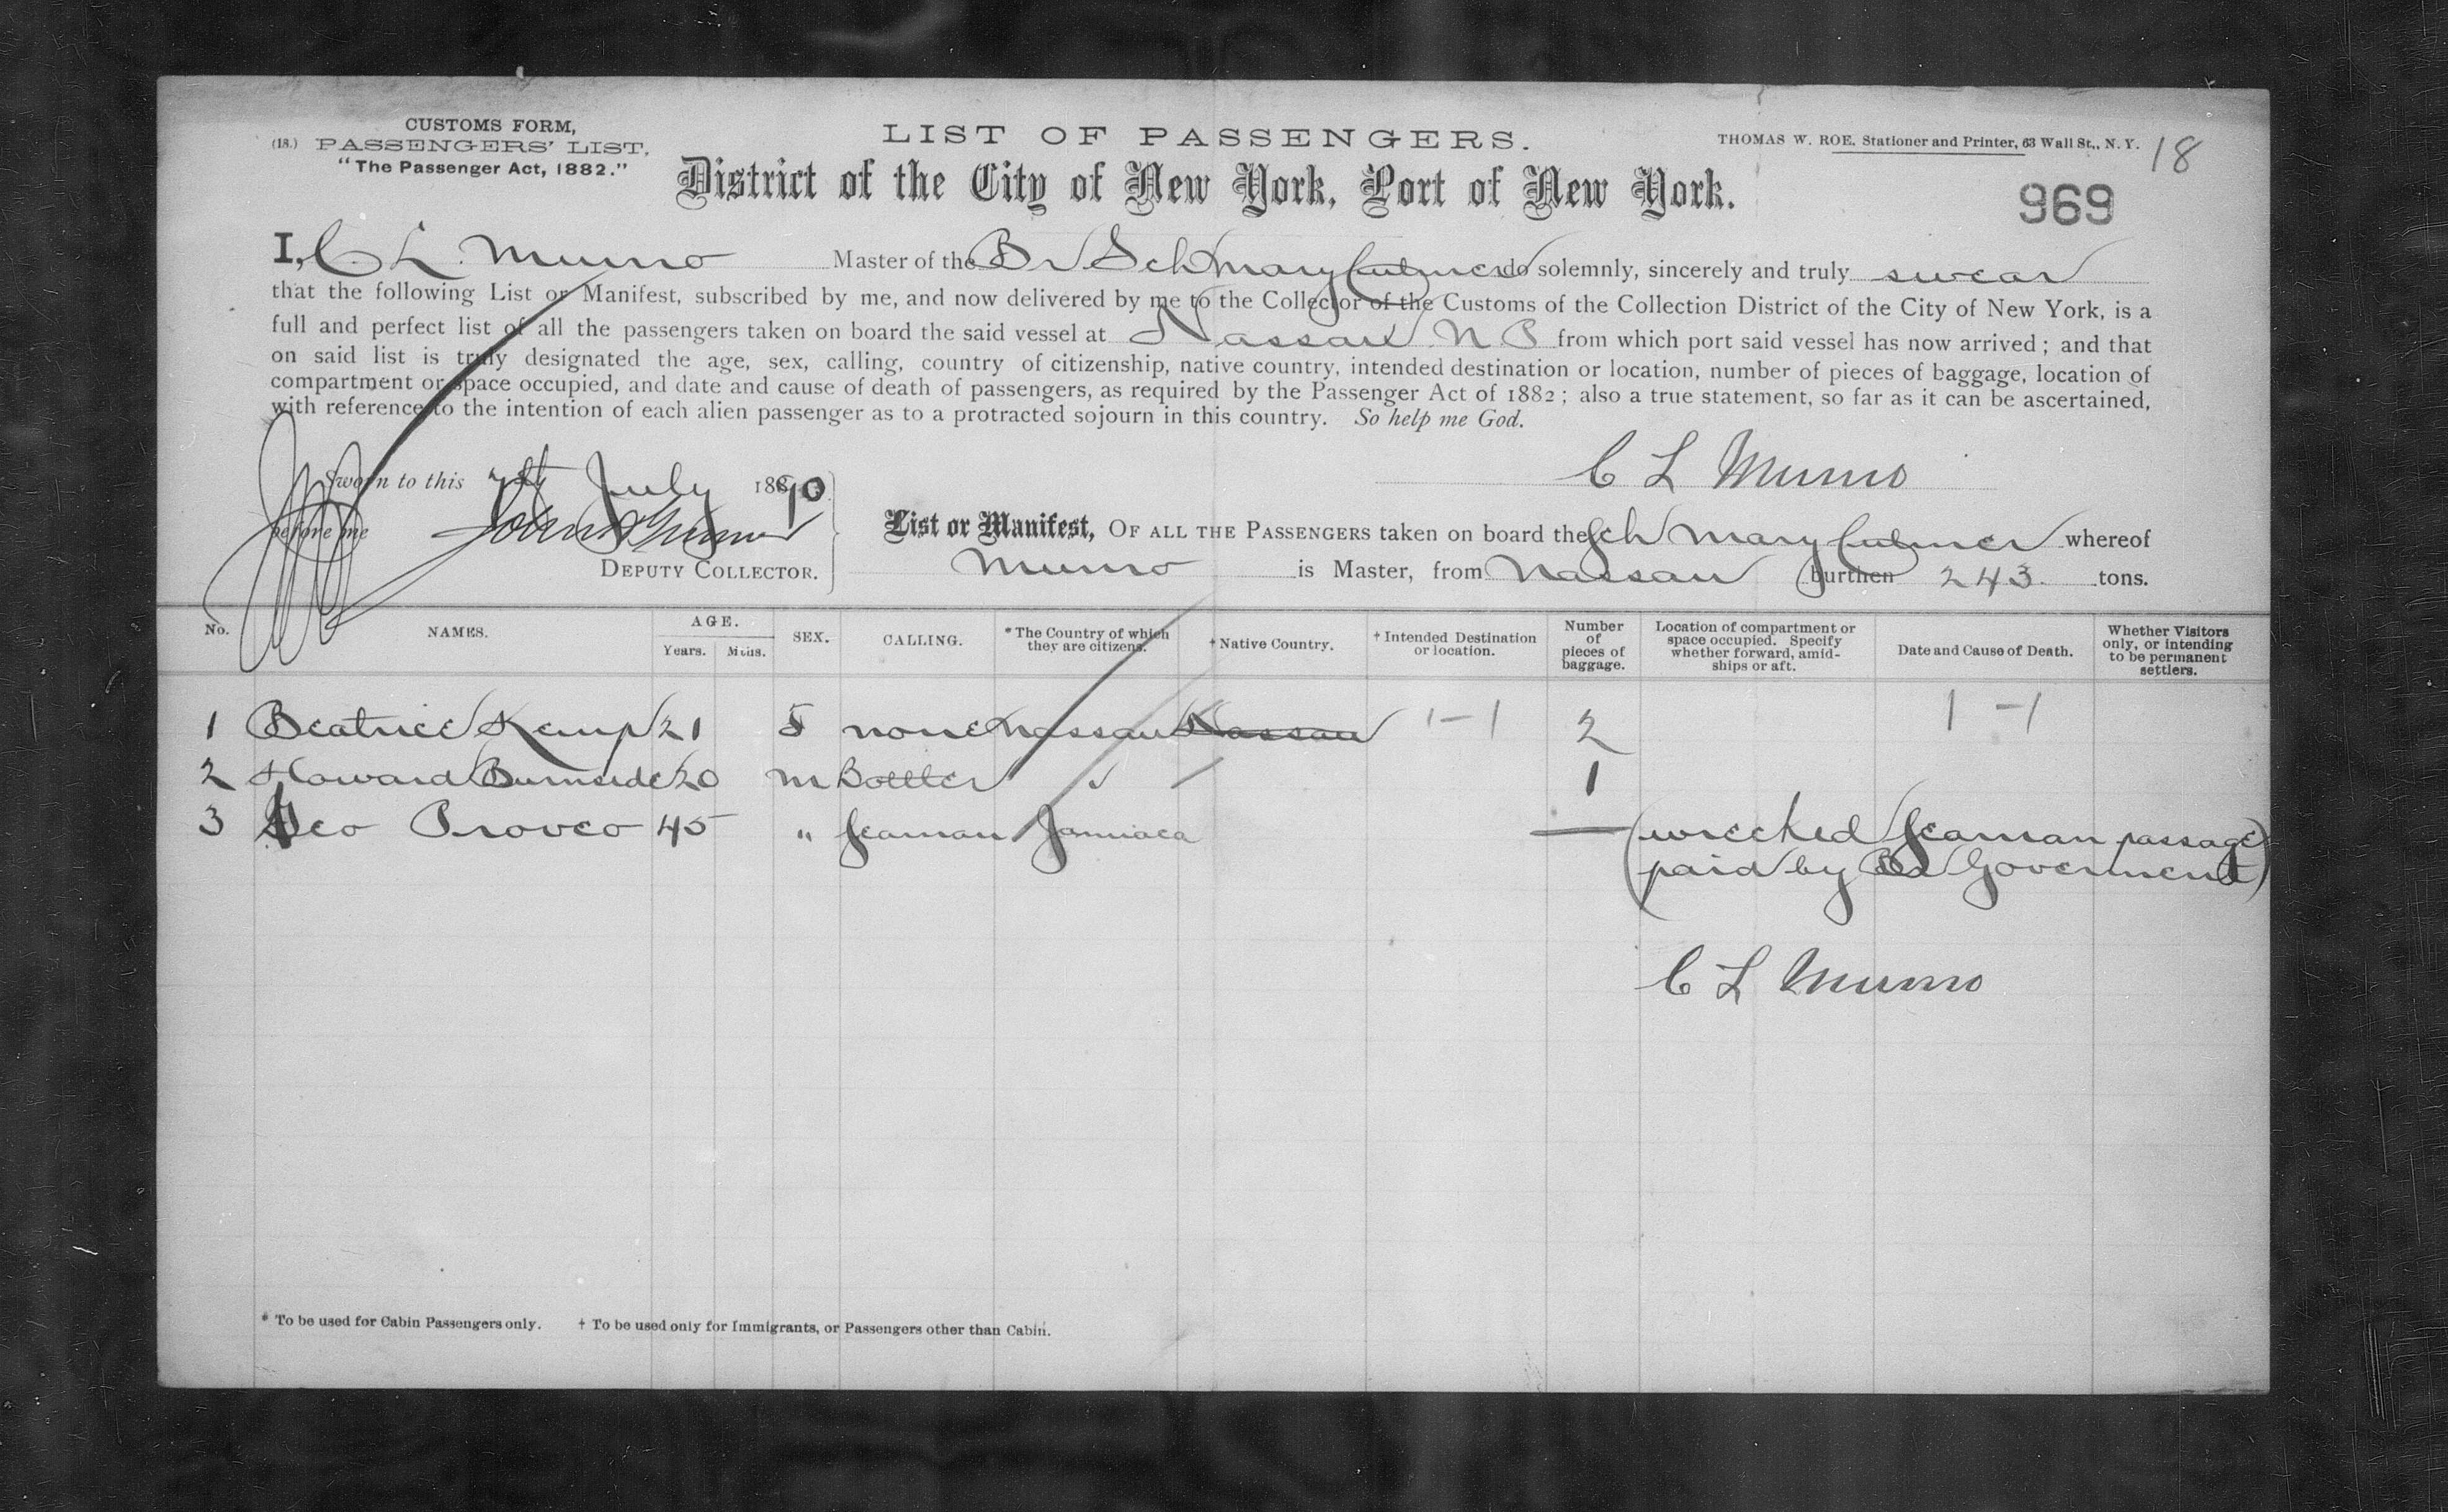 CUSTOMS FORM,
(18.) PASSENGERS' LIST,
"The Passenger Act, 1882."
LIST OF PASSENGERS.
THOMAS W. ROE, Stationer and Printer, 63 Wall St., N. Y.
18
District of the City of New York, Port of New York.
969
I, C L Munro Master of the Br Sch Mary Culmer do solemnly, sincerely and truly swear
that the following List or Manifest, subscribed by me, and now delivered by me to the Collector of the Customs of the Collection District of the City of New York, is a
full and perfect list of all the passengers taken on board the said vessel at Nassau N P from which port said vessel has now arrived; and that
on said list is truly designated the age, sex, calling, country of citizenship, native country, intended destination or location, number of pieces of baggage, location of
compartment or space occupied, and date and cause of death of passengers, as required by the Passenger Act of 1882; also a true statement, so far as it can be ascertained,
with reference to the intention of each alien passenger as to a protracted sojourn in this country. So help me God.
C L Munro
Sworn to this 7th July 1890
before me
DEPUTY COLLECTOR.
List or Manifest, OF ALL THE PASSENGERS taken on board the Sch Mary Culmer whereof
Munro is Master, from Nassau burthen 243 tons.
No. NAMES. AGE. Years. Mths. SEX. CALLING. * The Country of which they are citizens. † Native Country. † Intended Destination or location. Number of pieces of baggage. Location of compartment or space occupied. Specify whether forward, amidships or aft. Date and Cause of Death. Whether Visitors only, or intending to be permanent settlers.
1 Beatrice Kemp 21 F none Nassau Nassau 1-1 2 1-1
2 Howard Burnside 20 M Bottler 1
3 Geo Proveo 45 " Seaman Jamiaca — (wrecked Seaman passage
paid by Br Goverment)
C L Munro
* To be used for Cabin Passengers only. † To be used only for Immigrants, or Passengers other than Cabin.